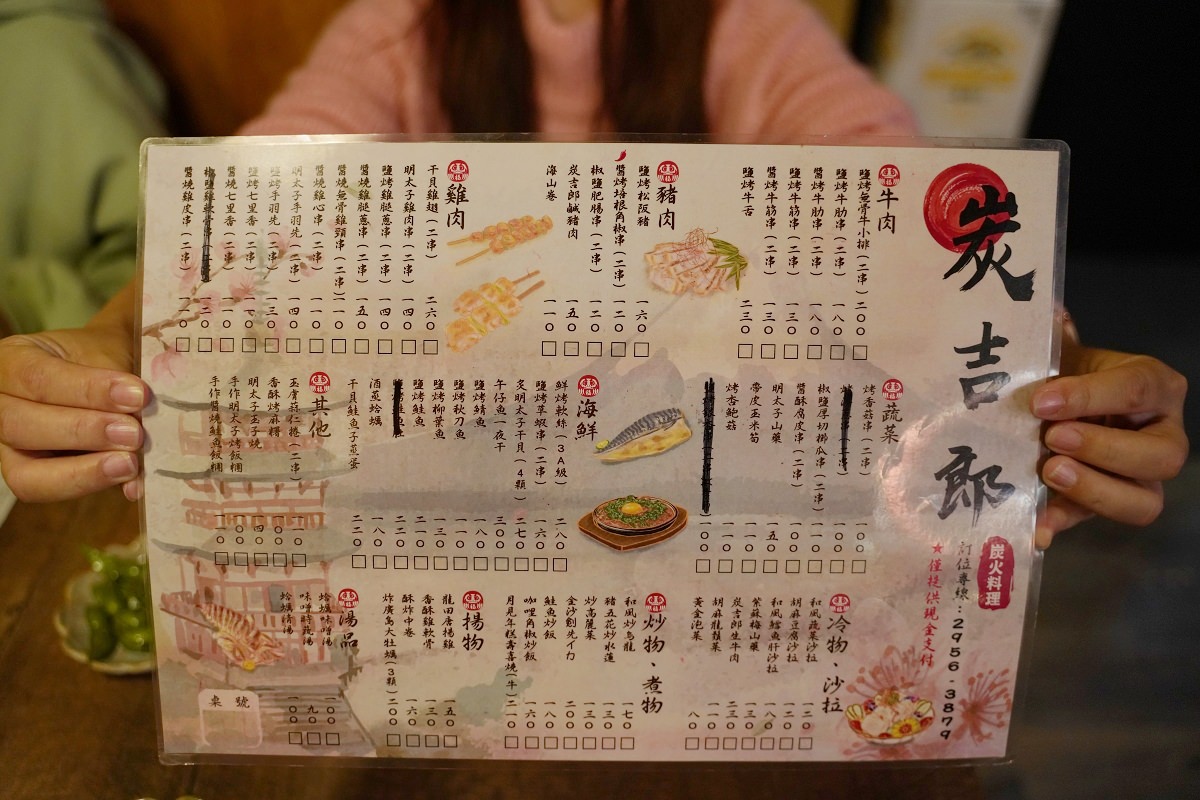 炭吉郎
炭火料理
訂位專線:2956-3879
★僅提供現金支付
牛肉
鹽烤無骨牛小排(二串)二00
鹽烤牛肋串(二串)一八0
醬烤牛肋串(二串)一八0
鹽烤牛筋串(二串)一三0
醬烤牛筋串(二串)一三0
鹽烤牛舌 二三0
豬肉
鹽烤松阪豬 一六0
醬烤培根角椒串(二串)一二0
椒鹽肥腸串(二串)一二0
炭吉郎鹹豬肉 一五0
海山卷 一一0
雞肉
干貝雞翅(二串)二六0
明太子雞肉串(二串)一四0
鹽烤雞腿蔥串(二串)一四0
醬燒雞腿蔥串(二串)一五0
醬燒無骨雞頸串(二串)一一0
醬燒雞心串(二串)一一0
明太子手羽先(二串)一四0
鹽烤手羽先(二串)一三0
鹽烤七里香(二串)
醬燒七里香(二串)一一0
醬燒雞皮串(二串)一一0
蔬菜
烤香菇串(二串)一00
椒鹽厚切櫛瓜串(二串)一一0
醬酥腐皮串(二串)
明太子山藥 一五0
帶皮玉米筍 一一0
烤杏鮑菇 一一0
海鮮
鮮烤軟絲(3A級)二八0
鹽烤草蝦串(二串)一六0
炙明太子干貝(4顆)二七0
午仔魚一夜干 三00
鹽烤鯖魚 一八0
鹽烤秋刀魚 一一0
鹽烤柳葉魚 一三0
鹽烤鮭魚 二二0
酒蒸蛤蠣 一八0
干貝鮭魚子蒸蛋 二五0
其他
玉膚菇仁捲(二串)
香酥烤麻糬
明太子玉子燒
手作明太子烤飯糰
手作醬燒鮭魚飯糰
冷物、沙拉
和風蔬菜沙拉 一二0
胡麻豆腐沙拉 一二0
和風鱈魚肝沙拉 一八0
紫蘇梅山藥 一三0
炭吉郎生牛肉 二三0
胡麻龍鬚菜 一一0
黃金泡菜 八0
炒物、煮物
和風炒烏龍 一七0
豬五花炒水蓮 一三0
炒高麗菜 一三0
金沙劍先イカ 二00
鮭魚炒飯 一八0
咖哩角椒炒飯 一六0
月見年糕壽喜燒(牛)二一0
揚物
龍田唐揚雞 一五0
香酥雞軟骨 一三0
酥炸中卷 一六0
炸廣島大牡蠣(3顆)二00
湯品
蛤蠣味噌湯 一00
味噌時蔬湯 九0
蛤蠣清湯 一00
桌號